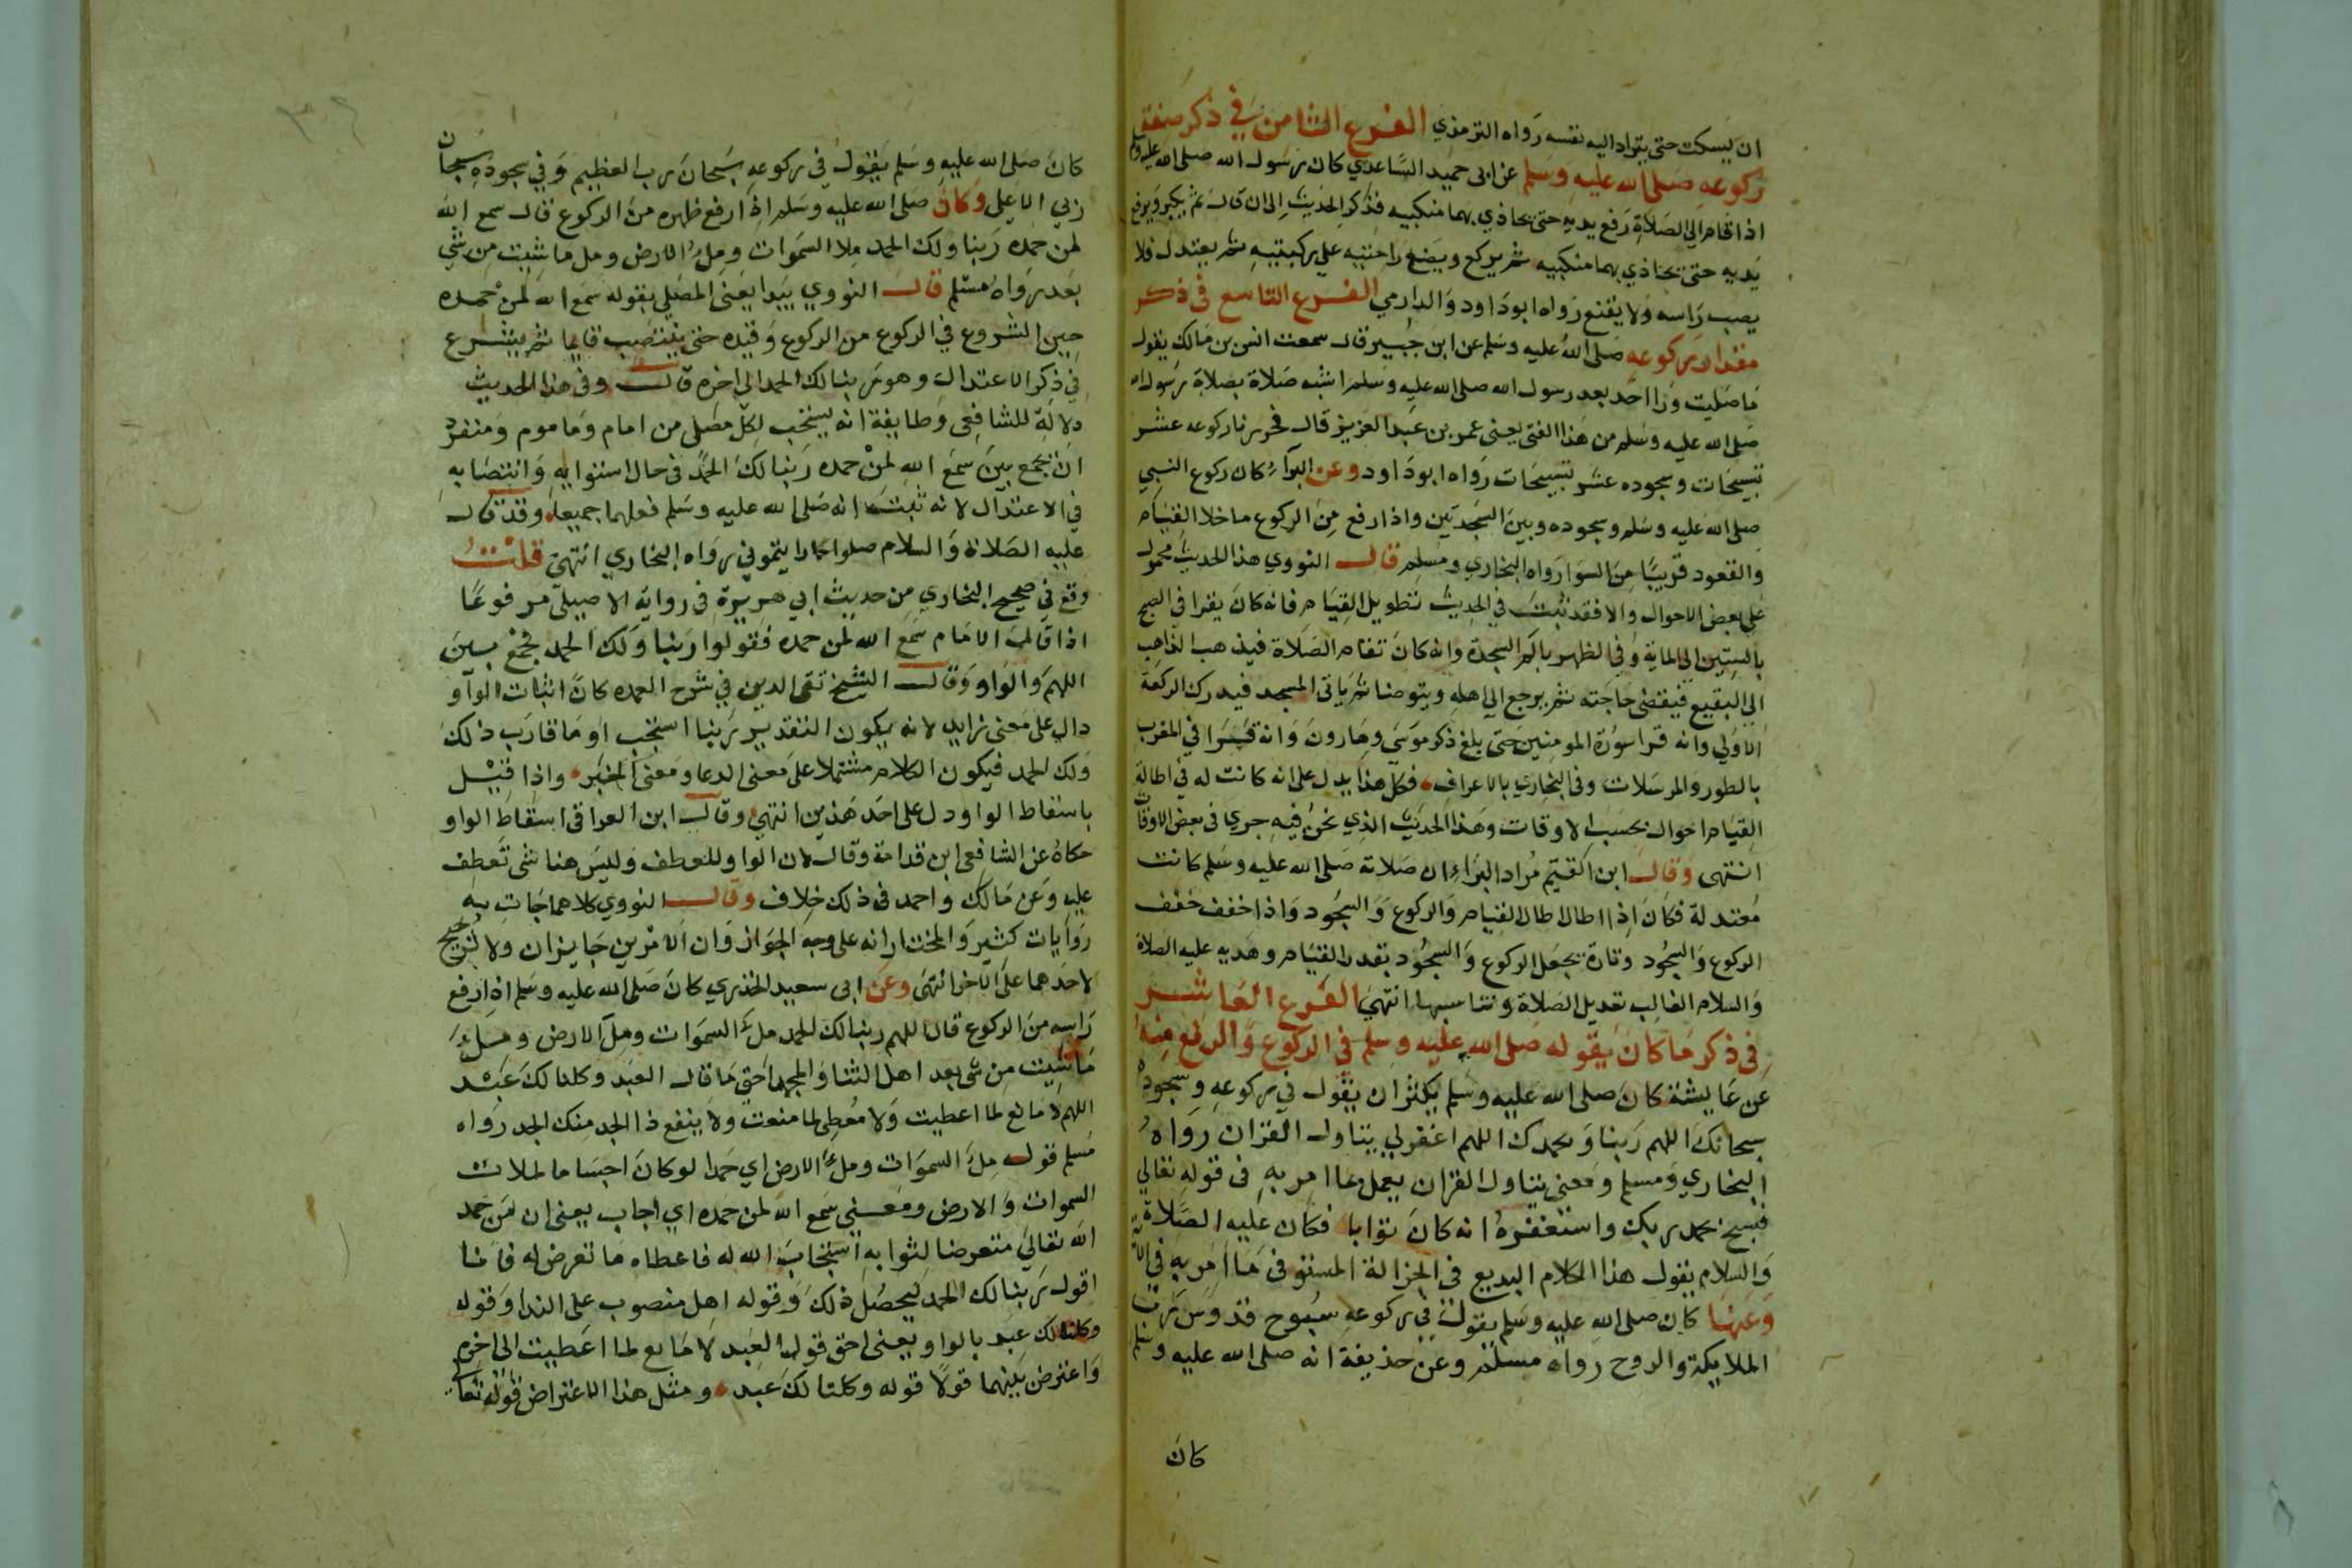 ان يسكت حتى يتراد اليه نفسه رواه الترمذي الفرع الثامن في ذكر صفة
ركوعه صلى الله عليه وسلم عن ابى حميد الساعدي كان رسول الله صلى الله عليه وسلم
اذا قام الى الصلاة رفع يديه حتى يحاذي بهما منكبيه فذكر الحديث الى ان قال ثم يكبر ويرفع
يديه حتى يحاذي بهما منكبيه ثم يركع ويضع راحتيه على ركبتيه ثم يعتدل فلا
يصب راسه ولا يقنع رواه ابوداود والدارمي الفرع التاسع فى ذكر
مقدار ركوعه صلى الله عليه وسلم عن ابن جبير قال سمعت انس بن مالك يقول
ما صليت ورا احد بعد رسول الله صلى الله عليه وسلم اشبه صلاة بصلاة رسول الله
صلى الله عليه وسلم من هذا الفتى يعنى عمر بن عبد العزيز قال فحزرنا ركوعه عشر
تسبيحات وسجوده عشر تسبيحات رواه ابوداود وعن البراء كان ركوع النبي
صلى الله عليه وسلم وسجوده وبين السجدتين واذا رفع من الركوع ما خلا القيام
والقعود قريبا من السوا رواه البخاري ومسلم قال النووي هذا الحديث محمول
على بعض الاحوال والا فقد ثبت في الحديث تطويل القيام فانه كان يقرا في الصبح
بالستين الى الماية وفي الظهر بالم السجدة وانه كان تقام الصلاة فيذهب الذاهب
الى البقيع فيقضى حاجته ثم يرجع الى اهله ويتوضا ثم ياتى المسجد فيدرك الركعة
الاولى وانه قرا سورة المومنين حتى بلغ ذكر موسى وهارون وانه قرا في المغرب
بالطور والمرسلات وفى البخاري بالاعراف فكل هذا يدل على انه كانت له في اطالة
القيام احوال بحسب الاوقات وهذا الحديث الذي نحن فيه جرى فى بعض الاوقات
انتهى وقال ابن القيم مراد البراء ان صلاته صلى الله عليه وسلم كانت
معتدلة فكان اذا اطال اطال القيام والركوع والسجود واذا خفف خفف
الركوع والسجود وتارة يجعل الركوع والسجود بقدر القيام وهديه عليه الصلاة
والسلام الغالب تعديل الصلاة وتناسبها انتهى الفرع العاشر
فى ذكر ما كان يقوله صلى الله عليه وسلم في الركوع والرفع منه
عن عايشة كان صلى الله عليه وسلم يكثر ان يقول في ركوعه وسجوده
سبحانك اللهم ربنا وبحمدك اللهم اغفرلى يتاول القران رواه
البخاري ومسلم ومعنى يتاول القران يعمل بما امر به فى قوله تعالى
فسبح بحمد ربك واستغفره انه كان توابا فكان عليه الصلاة
والسلام يقول هذا الكلام البديع فى الجزالة المستوفى ما امر به في الاية
وعنها كان صلى الله عليه وسلم يقول في ركوعه سبوح قدوس رب
الملايكة والروح رواه مسلم وعن حذيفة انه صلى الله عليه وسلم
كان
كان صلى الله عليه وسلم يقول في ركوعه سبحان رب العظيم وفي سجوده سبحان
ربي الاعلى وكان صلى الله عليه وسلم اذا رفع ظهره من الركوع قال سمع الله
لمن حمده ربنا ولك الحمد ملا السموات ومل الارض ومل ما شيت من شي
بعد رواه مسلم قال النووي يبدا يعنى المصلى بقوله سمع الله لمن حمده
حين الشروع في الركوع من الركوع وقيده حتى ينتصب قايما ثم يشرع
في ذكر الاعتدال وهو ربنا لك الحمد الى اخره قال وفى هذا الحديث
دلالة للشافعى وطايفة انه يستحب لكل مصلى من امام وماموم ومنفرد
ان يجمع بين سمع الله لمن حمده ربنا لك الحمد فى حال استوايه وانتصابه
في الاعتدال لانه ثبت انه صلى الله عليه وسلم فعلهما جميعا وقد قال
عليه الصلاة والسلام صلوا كما رايتمونى رواه البخاري انتهى قلت
وقع في صحيح البخاري من حديث ابي هريرة فى رواية الاصيلى مرفوعا
اذا قال الامام سمع الله لمن حمده فقولوا ربنا ولك الحمد فجمع بين
اللهم والواو وقال الشيخ تقى الدين في شرح العمده كان اثبات الواو
دال على معنى زايد لانه يكون التقدير ربنا استجب او ما قارب ذلك
ولك الحمد فيكون الكلام مشتملا على معنى الدعا ومعنى الخبر واذا قيل
باسقاط الواو دل على احد هذين انتهى وقال ابن العراقى اسقاط الواو
حكاه عن الشافعى ابن قدامة وقال لان الواو للعطف وليس هنا شى تعطف
عليه وعن مالك واحمد فى ذلك خلاف وقال النووي كلاهما جات به
روايات كثير والمختار انه على وجه الجواز وان الامرين جايزان ولا ترجيح
لاحدهما على الاخر انتهى وعن ابى سعيد الخذري كان صلى الله عليه وسلم اذا رفع
راسه من الركوع قال اللهم ربنا لك الحمد مل السموات ومل الارض ومل
ما شيت من شى بعد اهل الثنا والمجد احق ما قال العبد وكلنا لك عبد
اللهم لا مانع لما اعطيت ولا معطى لما منعت ولا ينفع ذا الجد منك الجد رواه
مسلم قوله مل السموات ومل الارض اي حمدا لو كان اجساما لملات
السموات والارض ومعنى سمع الله لمن حمده اي اجاب يعنى ان من حمد
الله تعالى متعرضا لثوابه استجاب الله له فاعطاه ما تعرض له فانا
اقول ربنا لك الحمد ليحصل ذلك وقوله اهل منصوب على الندا وقوله
وكلنا لك عبد بالواو يعنى احق قول العبد لا مانع لما اعطيت الى اخره
واعترض بينهما قولا قوله وكلنا لك عبد ومثل هذا الاعتراض قوله تعالى